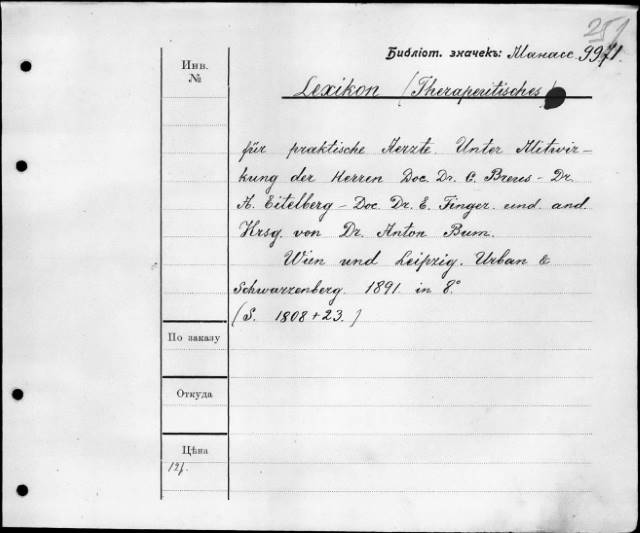 251
Библіот. значекъ: Манасс. 9971.
Инв.
№
Lexikon (Therapeutisches)
für praktische Aerzte. Unter Mitwir-
kung der Herren Doc. Dr. C. Breus - Dr.
A. Eitelberg - Doc. Dr. E. Finger. und and.
Hrsg. von Dr. Anton Bum.
Wien und Leipzig. Urban &
Schwarzenberg. 1891. in 8°.
(S. 1808 + 23.)
По заказу
Откуда
Цѣна